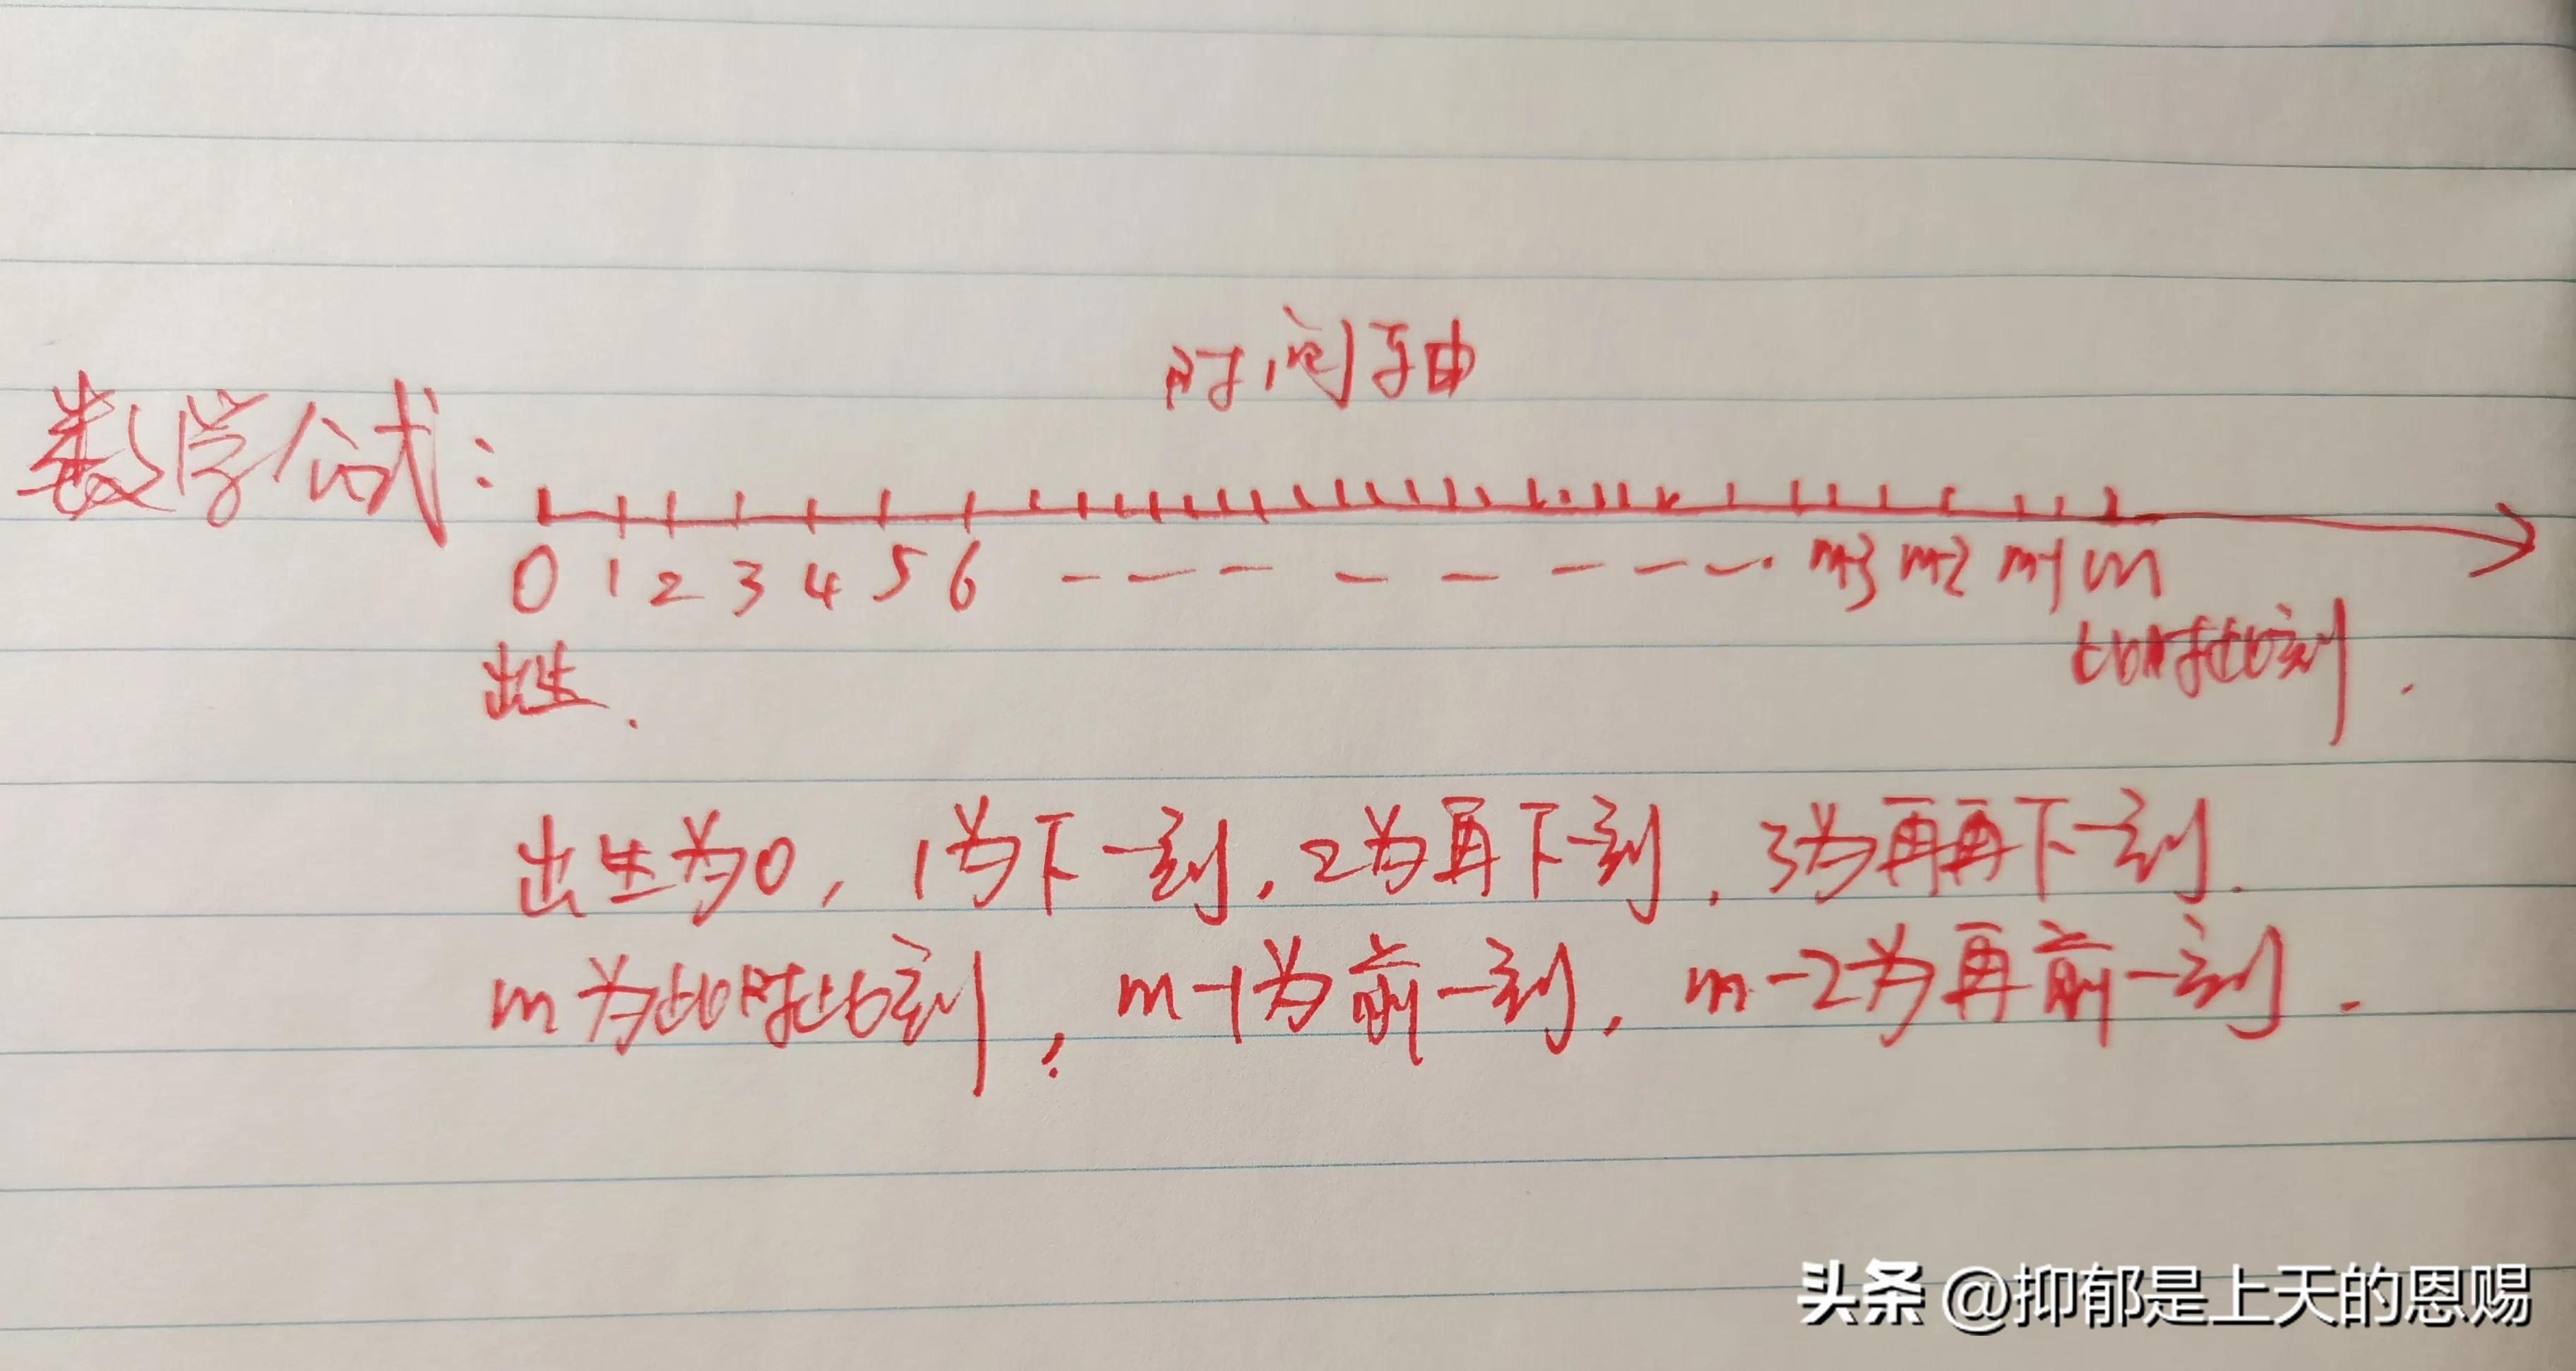 时间轴
数学公式：
0 1 2 3 4 5 6 - - - - - - - - m-3 m-2 m-1 m
出生. 此时此刻.
出生为0，1为下一刻，2为再下一刻，3为再再下一刻.
m为此时此刻，m-1为前一刻，m-2为再前一刻.
头条 @抑郁是上天的恩赐